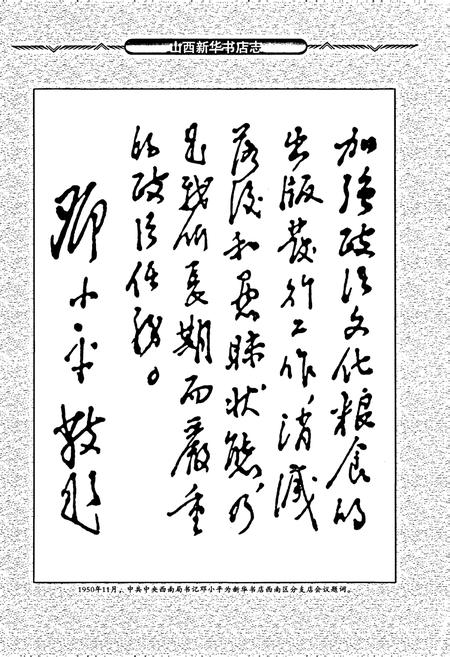 山西新华书店志
加強政治文化粮食的
出版發行工作，消滅
落後和愚昧状態，乃
是我們長期而嚴重
的政治任務。
鄧小平敬題
1950年11月，中共中央西南局书记邓小平为新华书店西南区分支店会议题词。